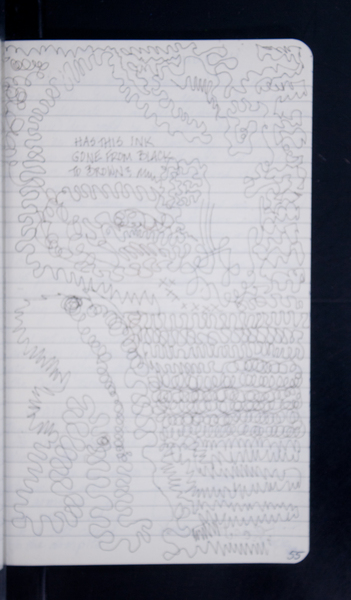 HAS THIS INK
GONE FROM BLACK
TO BROWN?
55